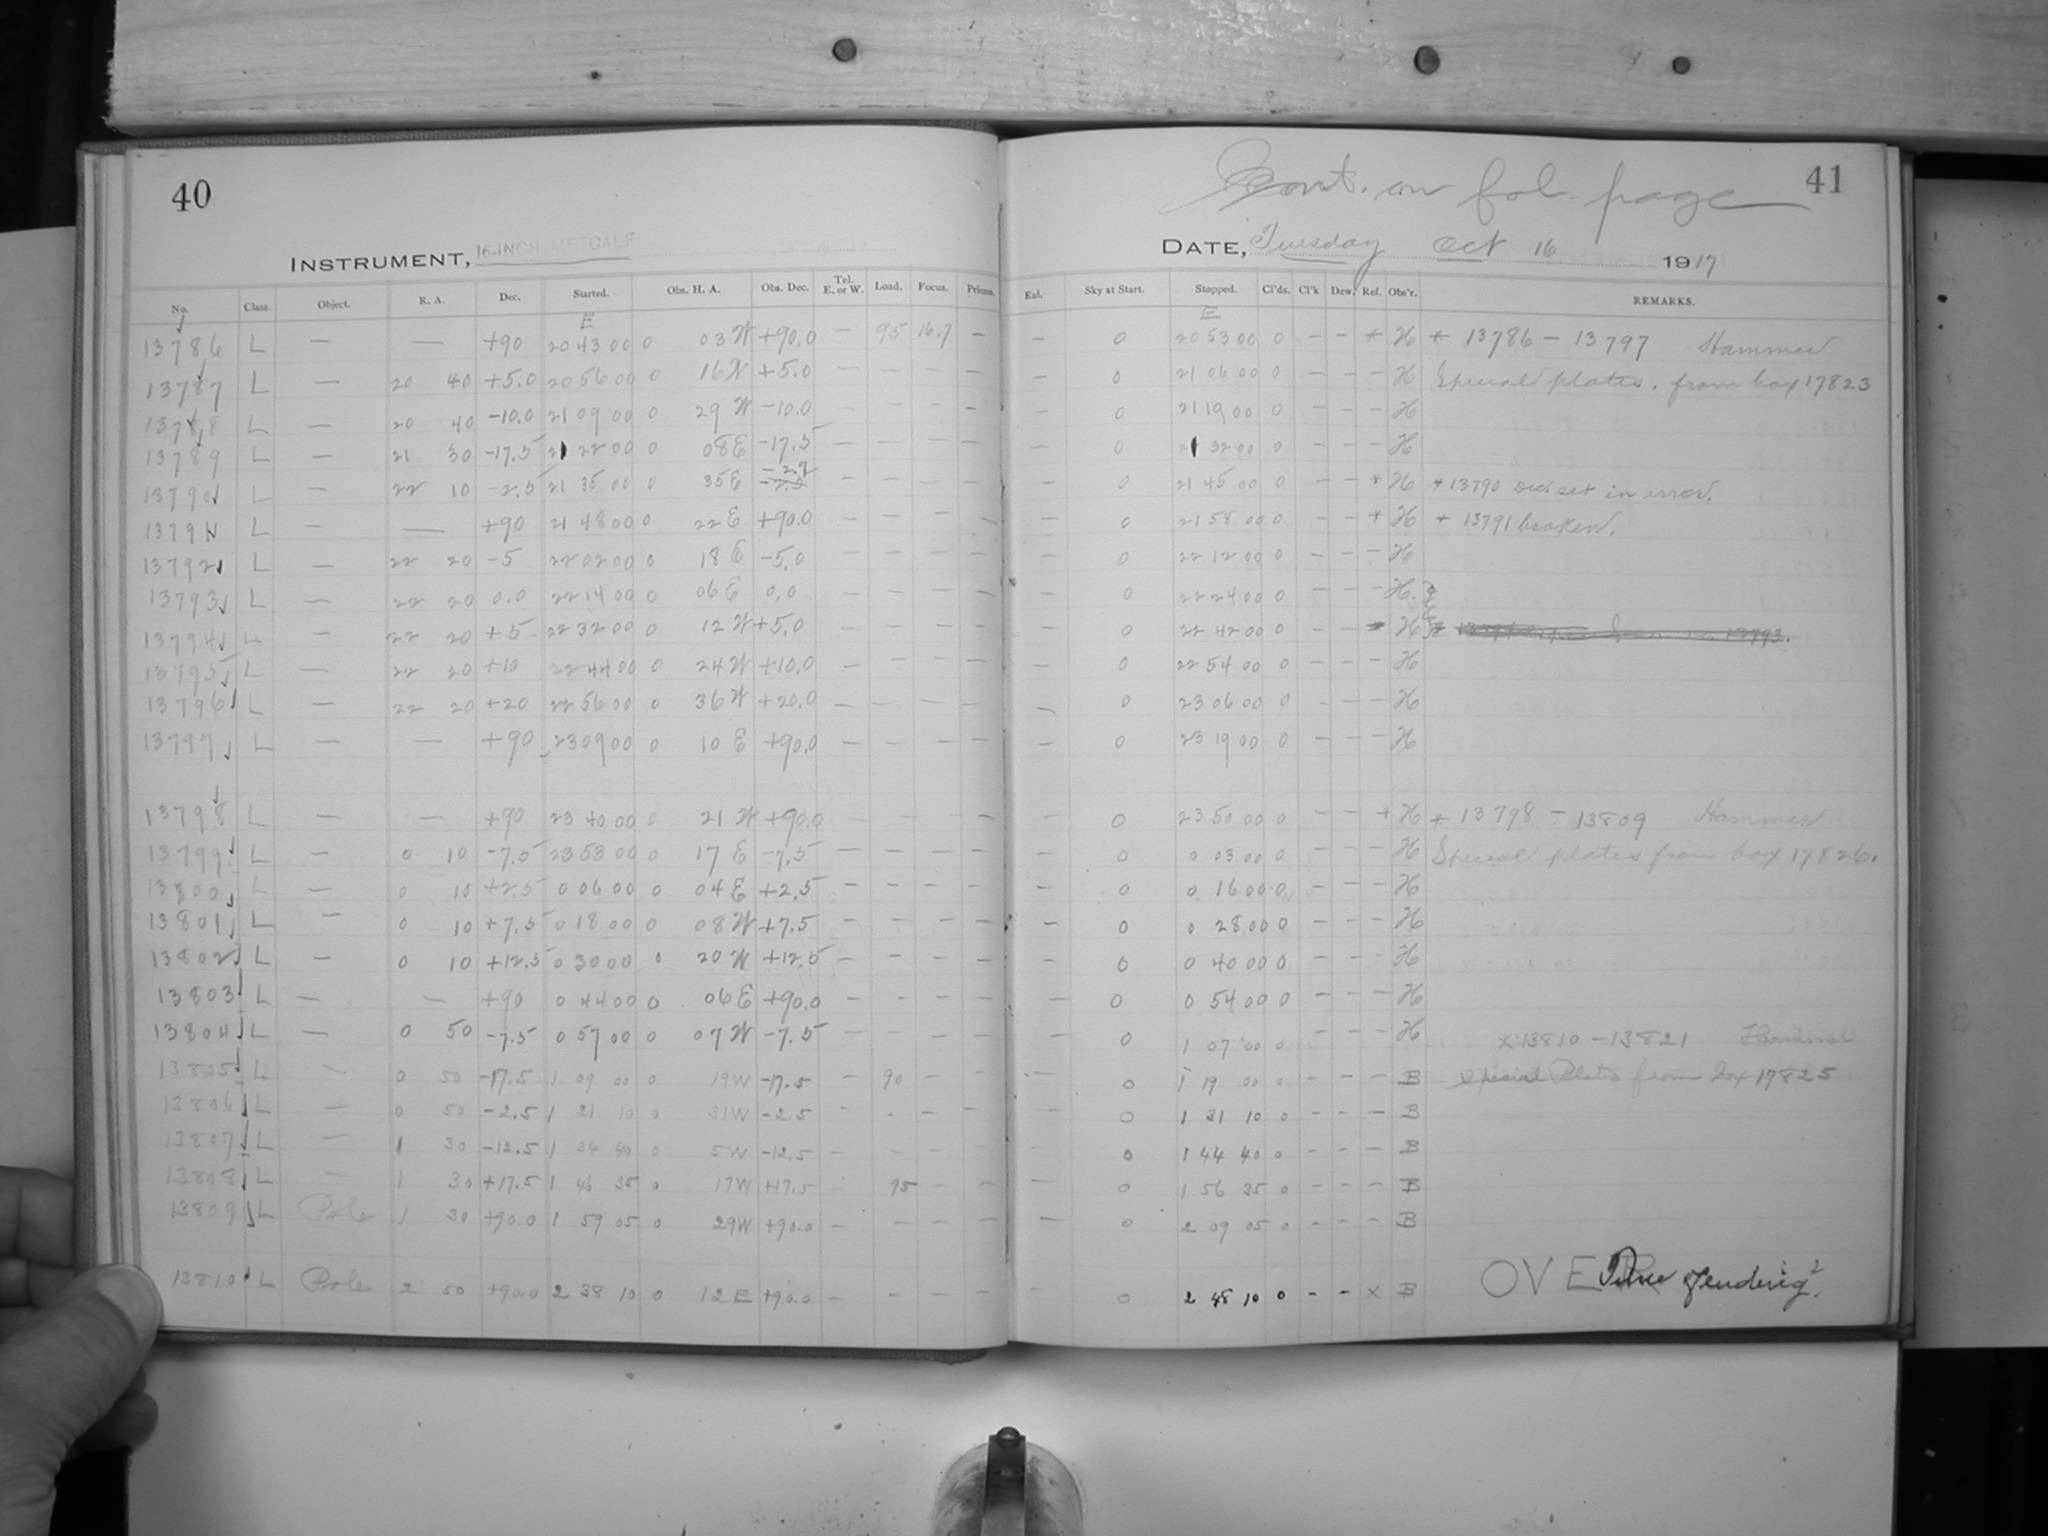 40
INSTRUMENT, 16-INCH METCALF
No. Class. Object. R. A. Dec. Started. Obs. H. A. Obs. Dec. Tel. E. or W. Load. Focus. Prisms.
E
13786 L — — +90 20 43 00 0 03 W +90.0 — 95 16.7 —
13787 L — 20 40 +5.0 20 56 00 0 16 W +5.0 — — — —
13788 L — 20 40 -10.0 21 09 00 0 29 W -10.0 — — — —
13789 L — 21 30 -17.5 21 22 00 0 08 E -17.5 — — — —
13790 L — 22 10 -2.5 21 35 00 0 35 E -2.9 — — — —
13791 L — — +90 21 48 00 0 22 E +90.0 — — — —
13792 L — 22 20 -5 22 02 00 0 18 E -5.0 — — — —
13793 L — 22 20 0.0 22 14 00 0 06 E 0.0 — — — —
13794 L — 22 20 +5 22 32 00 0 12 W +5.0 — — — —
13795 L — 22 20 +10 22 44 00 0 24 W +10.0 — — — —
13796 L — 22 20 +20 22 56 00 0 36 W +20.0 — — — —
13797 L — — +90 23 09 00 0 10 E +90.0 — — — —
13798 L — — +90 23 40 00 0 21 W +90.0 — — — —
13799 L — 0 10 -7.5 23 53 00 0 17 E -7.5 — — — —
13800 L — 0 10 +2.5 0 06 00 0 04 E +2.5 — — — —
13801 L — 0 10 +7.5 0 18 00 0 08 W +7.5 — — — —
13802 L — 0 10 +12.5 0 30 00 0 20 W +12.5 — — — —
13803 L — — +90 0 44 00 0 06 E +90.0 — — — —
13804 L — 0 50 -7.5 0 57 00 0 07 W -7.5 — — — —
13805 L — 0 50 -17.5 1 09 00 0 19 W -17.5 — 90 — —
13806 L — 0 50 -2.5 1 21 10 0 31 W -2.5 — — — —
13807 L — 1 30 -12.5 1 34 40 0 5 W -12.5 — — — —
13808 L — 1 30 +17.5 1 46 35 0 17 W +17.5 — 95 — —
13809 L Pole 1 30 +90.0 1 59 05 0 29 W +90.0 — — — —
13810 L Pole 2 50 +90.0 2 38 10 0 12 E +90.0 — — — —
Cont. on fol. page 41
DATE, Tuesday Oct 16 1917
Enl. Sky at Start. Stopped. Cl'ds. Cl'k Dew. Ref. Obs'r. REMARKS.
E
— 0 20 53 00 0 — — * H * 13786 — 13797 Hammer
— 0 21 06 00 0 — — — H Special plates. from box 17823
— 0 21 19 00 0 — — — H
— 0 21 32 00 0 — — — H
— 0 21 45 00 0 — — * H * 13790 Dec. set in error.
— 0 21 58 00 0 — — * H * 13791 broken.
— 0 22 12 00 0 — — — H
— 0 22 24 00 0 — — — H.
— 0 22 42 00 0 — — * H
— 0 22 54 00 0 — — — H
— 0 23 06 00 0 — — — H
— 0 23 19 00 0 — — — H
— 0 23 50 00 0 — — * H * 13798 — 13809 Hammer
— 0 0 03 00 0 — — — H Special plates from box 17826.
— 0 0 16 00 0 — — — H
— 0 0 28 00 0 — — — H
— 0 0 40 00 0 — — — H
— 0 0 54 00 0 — — — H
— 0 1 07 00 0 — — — H x 13810 — 13821 Hammer
— 0 1 19 00 0 — — — B Special Plates from box 17825
— 0 1 31 10 0 — — — B
— 0 1 44 40 0 — — — B
— 0 1 56 35 0 — — — B
— 0 2 09 05 0 — — — B
— 0 2 48 10 0 — — x B OVER